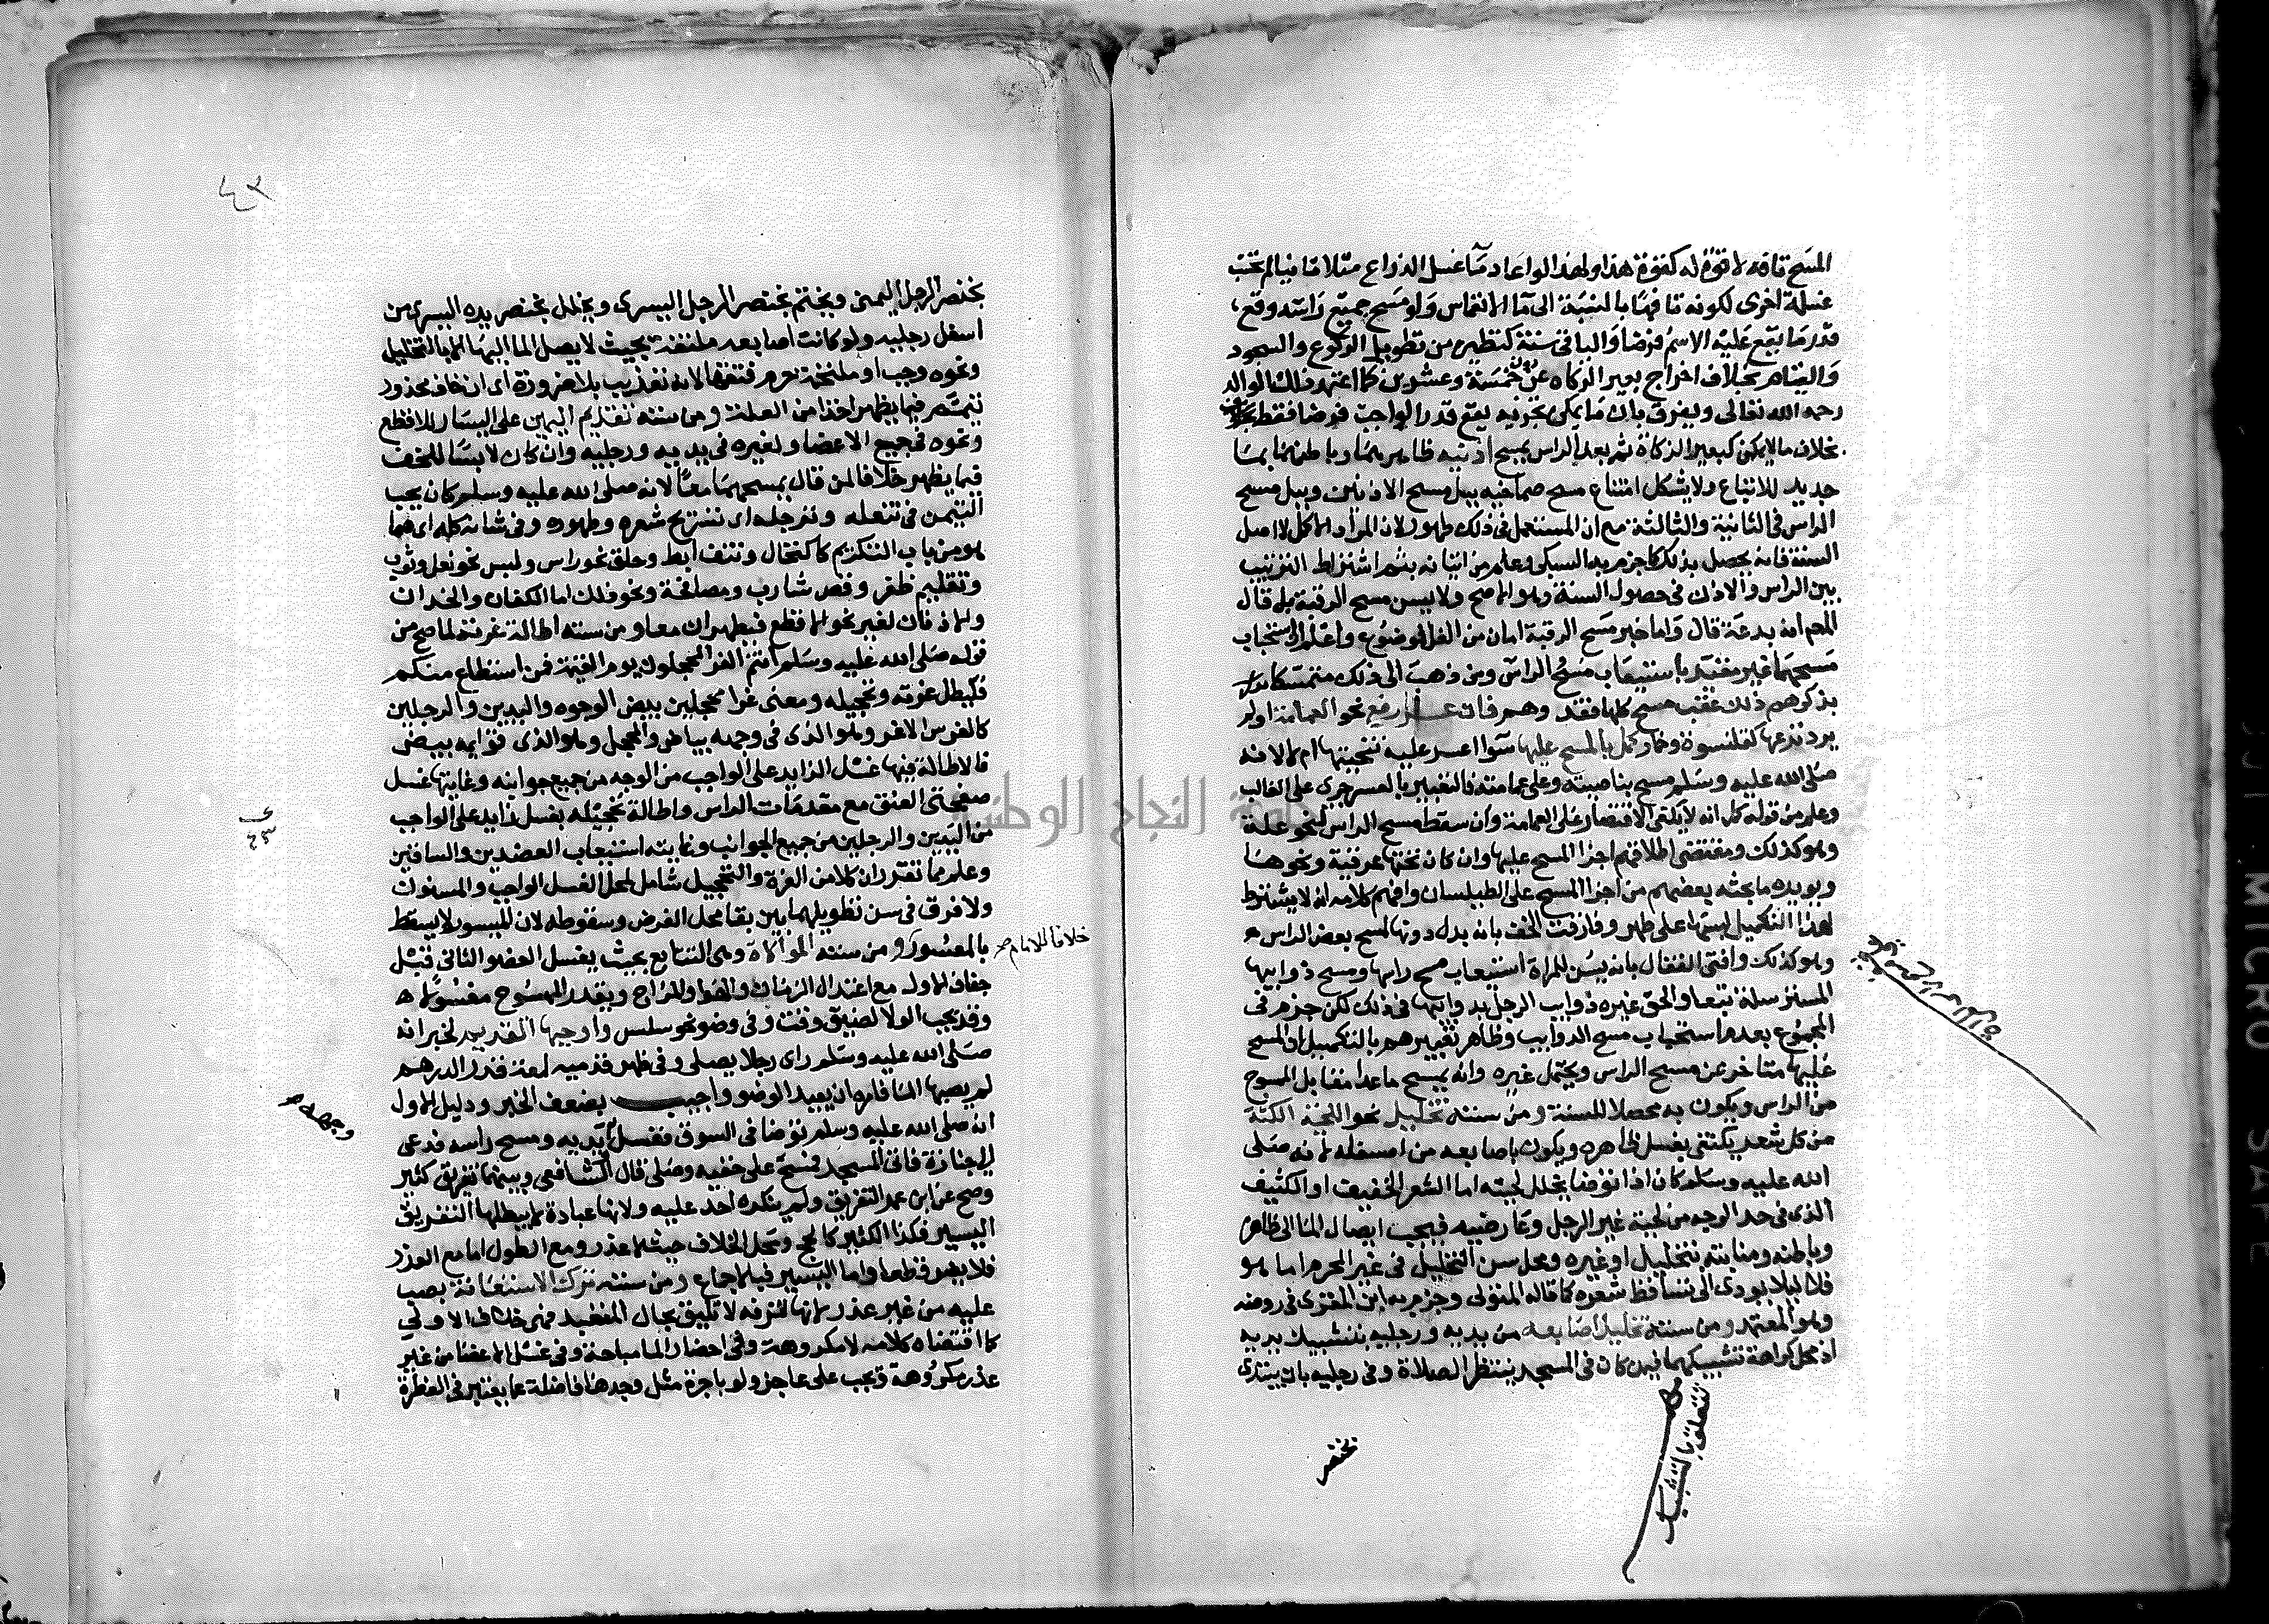 المسح تافه لا قوة له كقوة هذا ولهذا لو اعاد ماء غسل الذراع مثلا ثانيا لم تحسب
غسلة اخرى لكونه تافها بالنسبة الى ماء الانغماس ولو مسح جميع راسه وقع
قدر ما يقع عليه الاسم فرضا والباقى سنة كنظيره من تطويل الركوع والسجود
والقيام بخلاف اخراج بعير الزكاه عن دون خمسة وعشرين كما اعتمد ذلك الوالد
رحمه الله تعالى ويفرق بان ما يمكن تجزيه يقع قدر الواجب فرضا فقط
بخلاف ما لا يمكن كبعير الزكاة ثم بعد الراس يمسح اذنيه ظاهرهما وباطنهما بما
جديد للاتباع ولا يشكل امتناع مسح صماخيه ببل مسح الاذنين وببل مسح
الراس فى الثانية والثالثة مع ان المستعمل فى ذلك طهور لان المراد الاكل لا اصل
السنة فانه يحصل بذلك كما جزم به السبكى وعلم من اتيانه بثم اشتراط الترتيب
بين الراس والاذن فى حصول السنة وهو الاصح ولا يسن مسح الرقبة بل قال
المص انه بدعة قال واما خبر مسح الرقبة امان من الغل فموضوع واعلم ان استحباب
مسحهما غير مقيد باستيعاب مسح الراس ومن ذهب الى ذلك متمسكا
بذكرهم ذلك عقب مسح كلها فقد وهم فان عسر رفع نحو العمامة او لم
يرد نزعها كقلنسوة وخمار كمل بالمسح عليها سوا اعسر عليه تنحيتها ام لا لانه
صلى الله عليه وسلم مسح بناصيته وعلى عمامته فالتعبير بالعسر جرى على الغالب
وعلم من قوله كمل انه لا يكفى الاقتصار على العمامة وان سقط مسح الراس لنحو علة
وهو كذلك ومقتضى اطلاقهم اجزا المسح عليها وان كان تحتها عرقية ونحوها
ويويده ما بحثه بعضهم من اجزا المسح على الطيلسان وافهم كلامه انه لا يشترط
لهذا التكميل لبسها على طهر وفارقت الخف بانه بدل دونها لمسح بعض الراس
وهو كذلك وافتى القفال بانه يسن للمراة استيعاب مسح راسها ومسح ذوايبها
المسترسلة تبعا والحق غيره ذوايب الرجل بذوايبها فى ذلك لكن جزم فى
المجموع بعدم استحباب مسح الذوايب وظاهر تعبيرهم بالتكميل ان المسح
عليها متاخر عن مسح الراس ويحتمل غيره وانه يمسح ما عدا مقابل المسوح
من الراس ويكون به محصلا للسنة ومن سننه تخليل نحو اللحية الكثة
من كل شعر يكتفى بغسل ظاهره ويكون باصابعه من اسفله لانه صلى
الله عليه وسلم كان اذا توضا يخلل لحيته اما الشعر الخفيف او الكثيف
الذى فى حد الوجه من لحية غير الرجل وعارضيه فيجب ايصال الما الى ظاهره
وباطنه ومنابته بتخليل او غيره ومحل سن التخليل فى غير المحرم اما هو
فلا ليلا يودى الى تساقط شعره كما قاله المتولى وجزم به ابن المقرى فى روضه
وهو المعتمد ومن سننه تخليل اصابعه من يديه ورجليه بتشبيك يديه
اذ محل كراهة تشبيكهما فيمن كان فى المسجد ينتظر الصلاة وفى رجليه بان يبتدى
متعلق بالتشبيك
بخنصر
بخنصر الرجل اليمنى ويختم بخنصر الرجل اليسرى ويخلل بخنصر يده اليسرى من
اسفل رجليه ولو كانت اصابعه ملتفة بحيث لا يصل الما اليها الا بالتخليل
ونحوه وجب او ملتحمة حرم فتقها لانه تعذيب بلا ضرورة اى ان خاف محذور
تيمم فيما يظهر اخذا من العلة ومن سننه تقديم اليمين على اليسار للاقطع
ونحوه فى جميع الاعضا ولغيره فى يديه ورجليه وان كان لابسا للخف
فيما يظهر خلافا لمن قال يمسحهما معا لانه صلى الله عليه وسلم كان يحب
التيمن فى تنعله وترجله اى تسريح شعره وطهوره وفى شانه كله اى مما
هو من باب التكريم كاكتحال ونتف ابط وحلق نحو راس ولبس نحو نعل وثوب
وتقليم ظفر وقص شارب ومصافحة ونحو ذلك اما الكفان والخدان
والاذنان لغير نحو الاقطع فيطهران معا ومن سننه اطالة غرته لما صح من
قوله صلى الله عليه وسلم انتم الغر المحجلون يوم القيمة فمن استطاع منكم
فليطل غرته وتحجيله ومعنى غرا محجلين بيض الوجوه واليدين والرجلين
كالفرس الاغر وهو الذى فى وجهه بياض والمحجل وهو الذى قوايمه بيض
فالاطالة فيها غسل الزايد على الواجب من الوجه من جميع جوانبه وغايتها غسل
صفحتى العنق مع مقدمات الراس واطالة تحجيله بغسل زايد على الواجب
من اليدين والرجلين من جميع الجوانب وغايته استيعاب العضدين والساقين
وعلم مما تقرر ان كلا من الغرة والتحجيل شامل لمحل الغسل الواجب والمسنون
ولا فرق فى سن تطويلهما بين بقا محل الفرض وسقوطه لان الميسور لا يسقط
بالمعسور خلافا للامام ومن سننه الموالاة وهى التتابع بحيث يغسل العضو الثانى قبل
جفاف الاول مع اعتدال الزمان والهوا والمزاج ويقدر الممسوح مغسولا
وقد يجب الولا لضيق وقت وفى وضو نحو سلس واوجبها القديم لخبر انه
صلى الله عليه وسلم راى رجلا يصلى وفى ظهر قدميه لمعة قدر الدرهم
لم يصبها الما فامره ان يعيد الوضو واجيب بضعف الخبر ودليل الاول
انه صلى الله عليه وسلم توضا فى السوق فغسل وجهه ويديه ومسح راسه فدعى
لجنازة فاتى المسجد فمسح على خفيه وصلى قال الشافعى وبينهما تفريق كثير
وصح عن ابن عمر التفريق ولم ينكره احد عليه ولانها عبادة لا يبطلها التفريق
اليسير فكذا الكثير كالحج ومحل الخلاف حيث لا عذر ومع الطول اما مع العذر
فلا يضر قطعا واما اليسير فبالاجماع ومن سننه ترك الاستعانة بصب
عليه من غير عذر لانها لترفه لا تليق بحال المتعبد فهى خلاف الاولى
كما اقتضاه كلامه لا مكروهة وفى احضار الما مباحة وفى غسل الاعضا من غير
عذر مكروهة وتجب على عاجز ولو باجرة مثل وجدها فاضلة عما يعتبر فى الفطرة